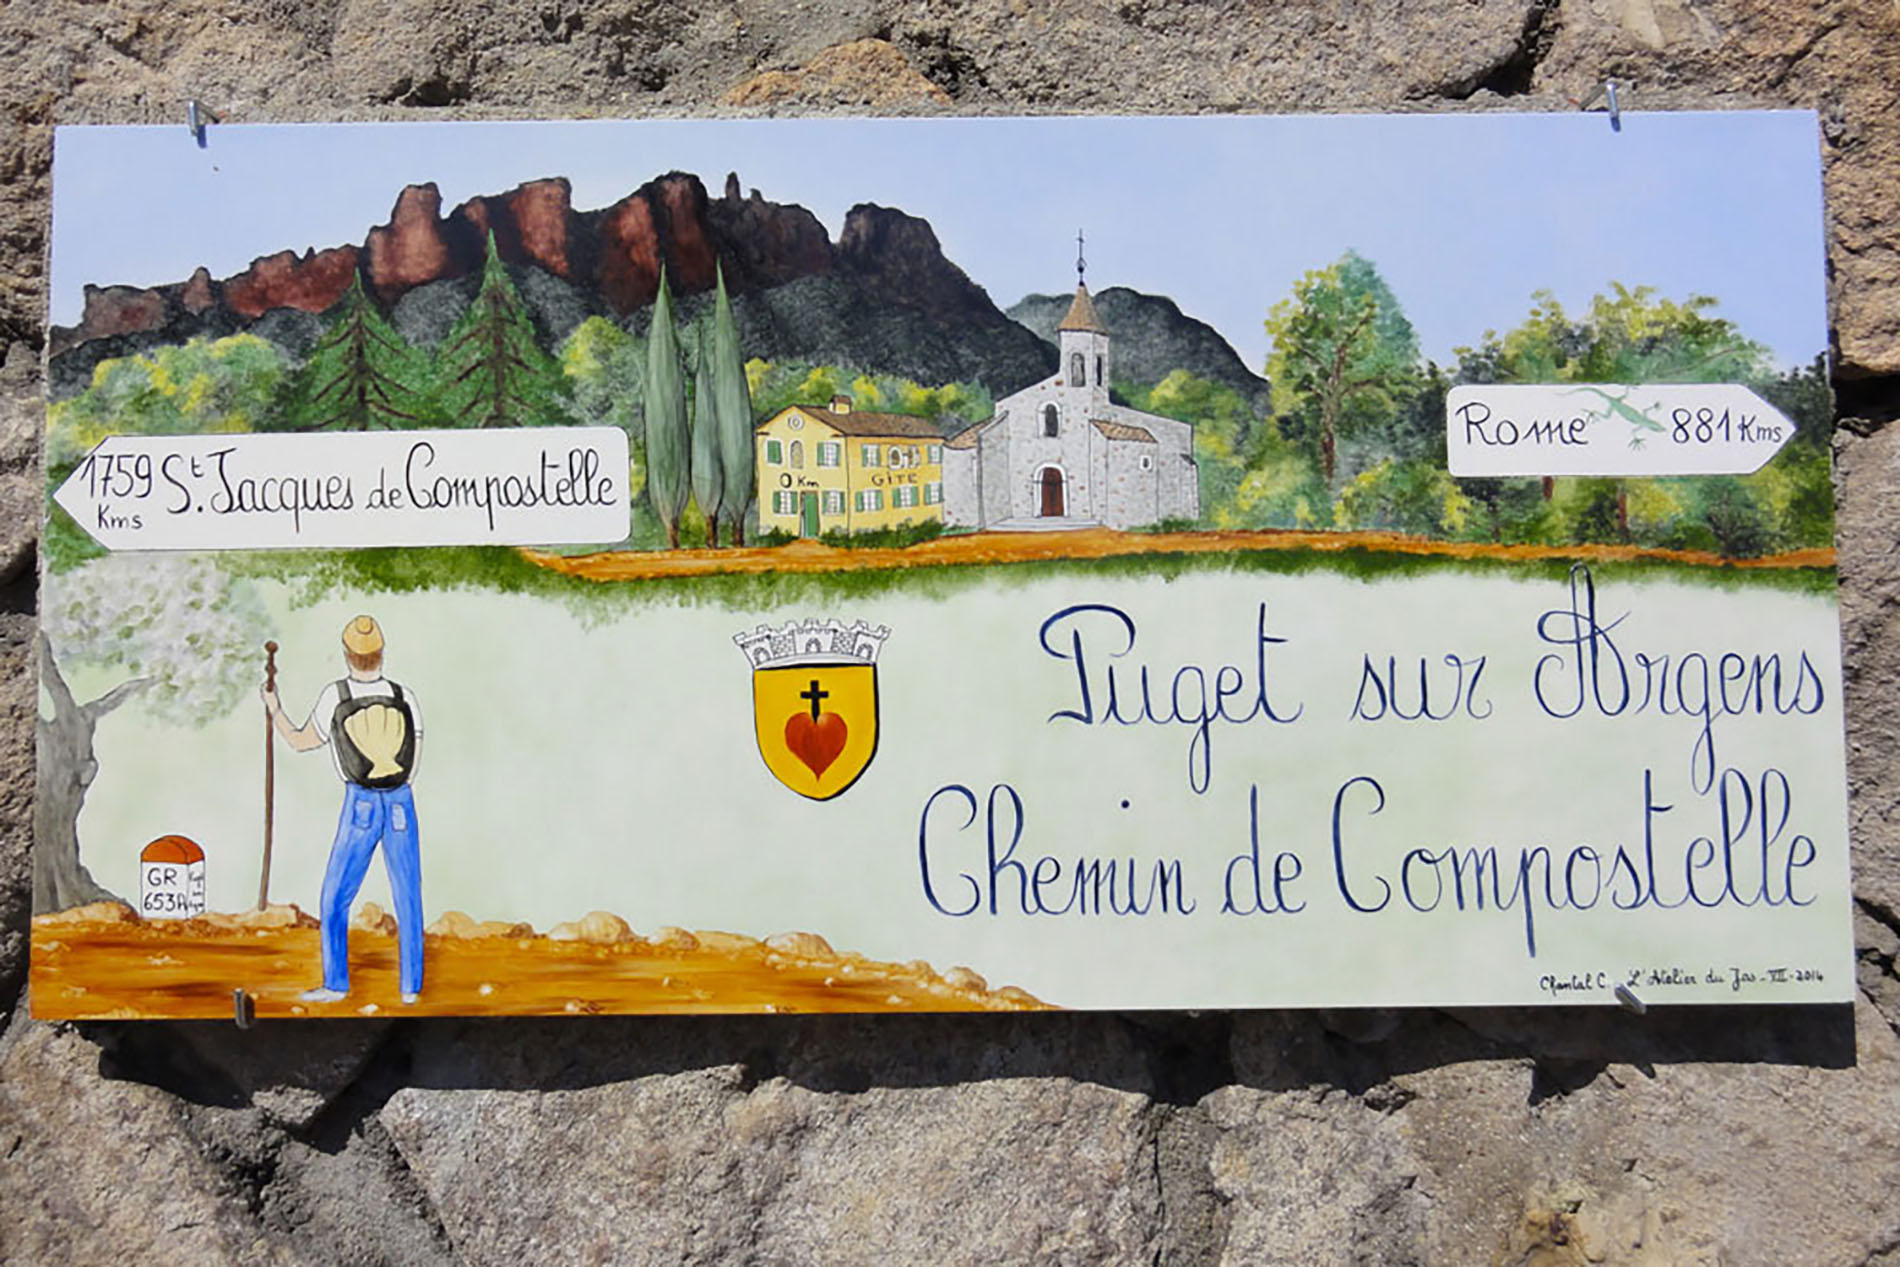 1759 St. Jacques de Compostelle
Kms
Rome 881 Kms
0 Km GÎTE
Puget sur Argens
Chemin de Compostelle
GR
653A
Chantal C. L'Atelier du Jas - VII - 2014